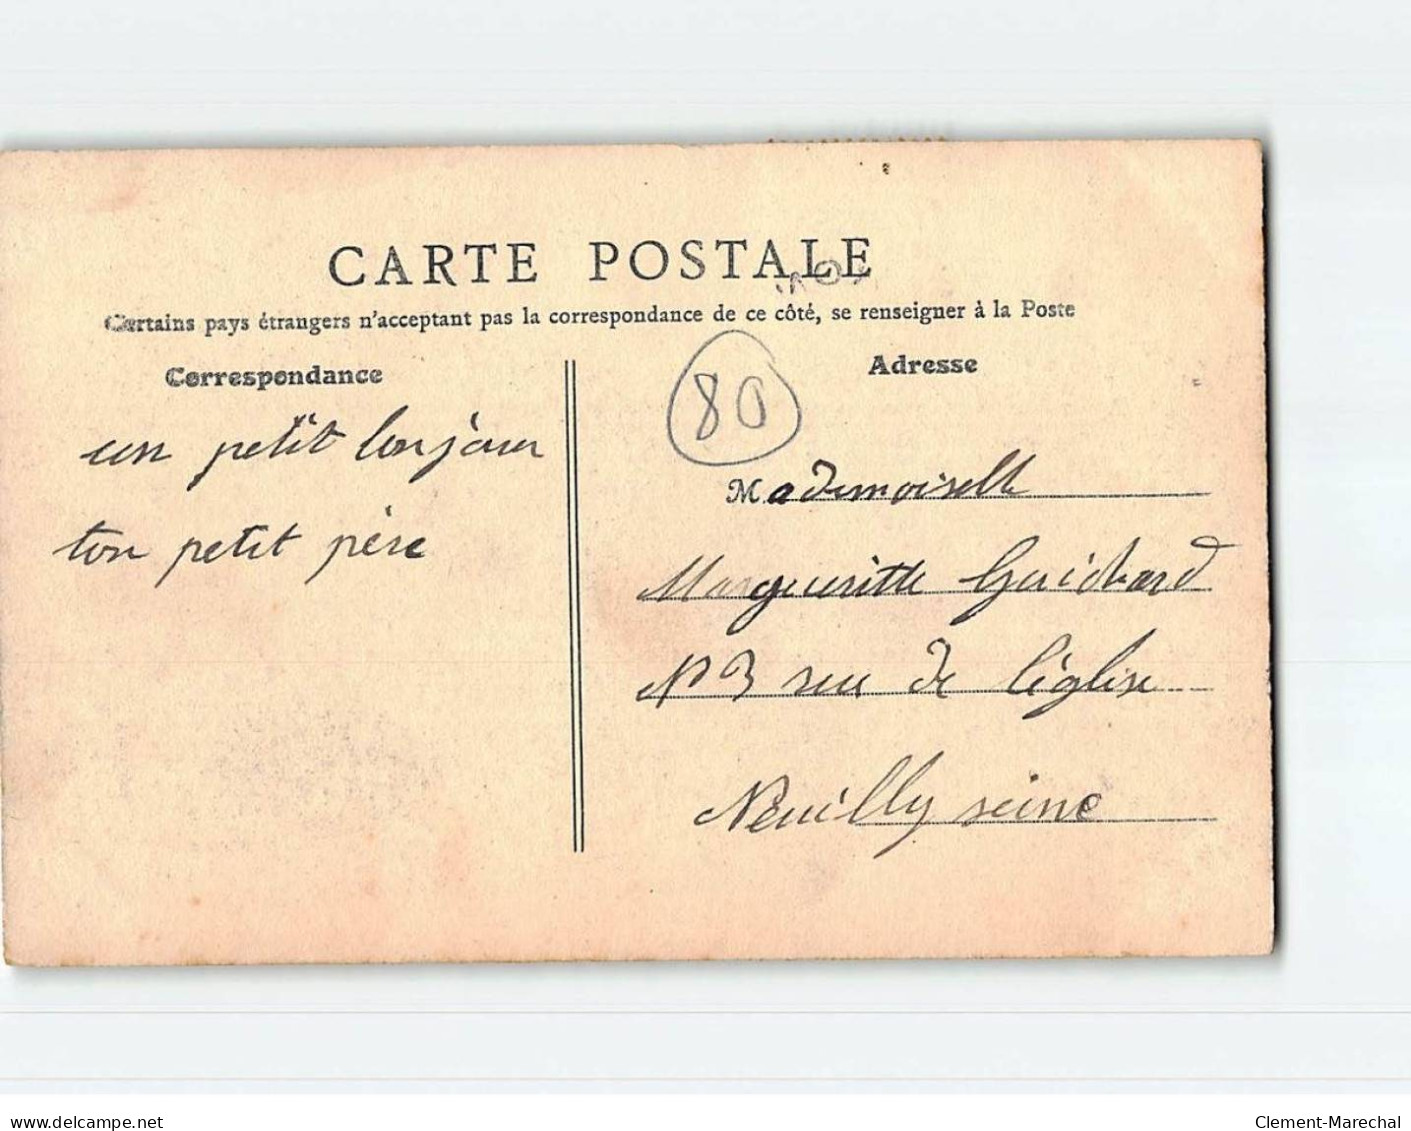 CARTE POSTALE
Certains pays étrangers n'acceptant pas la correspondance de ce côté, se renseigner à la Poste
Correspondance
Adresse
80
un petit bonjour
ton petit père
Mademoiselle
Margueritte Guichard
N 3 rue de l'église
Neuilly seine
www.delcampe.net
Clement-Marechal